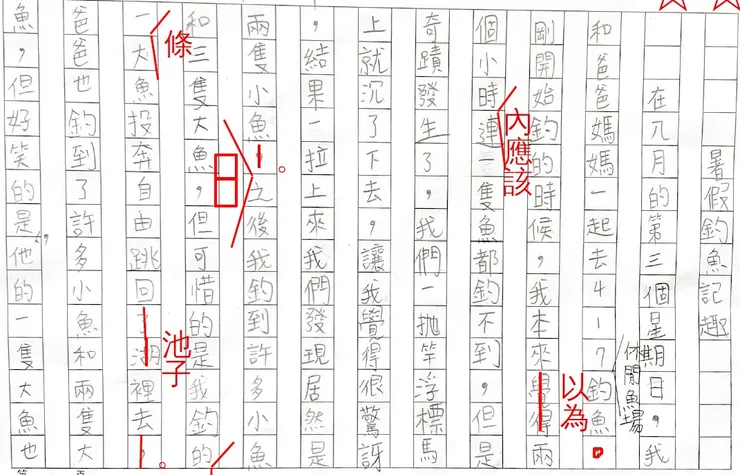 暑假釣魚記趣
在八月的第三個星期日,我
和爸爸媽媽一起去417釣魚。
休閒魚場
剛開始釣的時候,我本來覺得兩
以為
個小時連一隻魚都釣不到,但是
內應該
奇蹟發生了,我們一拋竿浮標馬
上就沉了下去,讓我覺得很驚訝
,結果一拉上來我們發現居然是
兩隻小魚。之後我釣到許多小魚
日
和三隻大魚,但可惜的是我釣的
一大魚投奔自由跳回了湖裡去。
條
池子
爸爸也釣到了許多小魚和兩隻大
魚,但好笑的是他的一隻大魚也